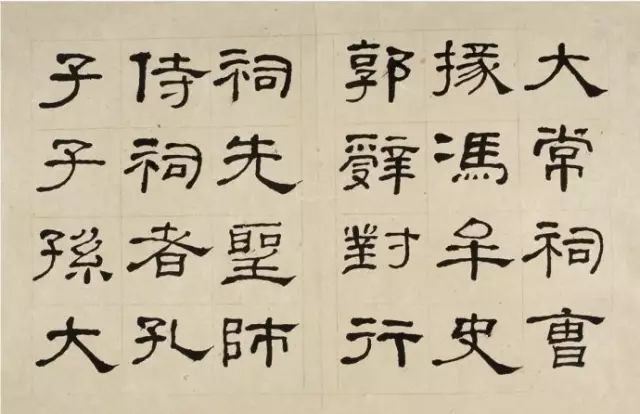 大常祠曹
掾馮牟史
郭辭對行
祠先聖師
侍祠者孔
子子孫大